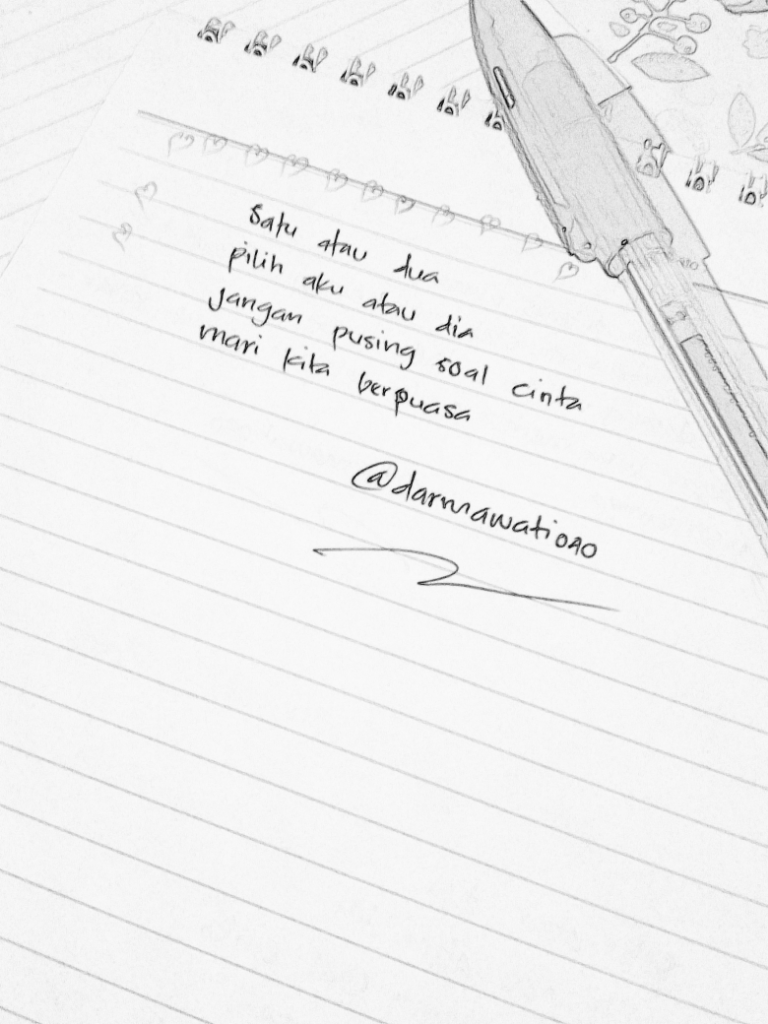 Satu atau dua
pilih aku atau dia
jangan pusing soal cinta
mari kita berpuasa
@darmawati040